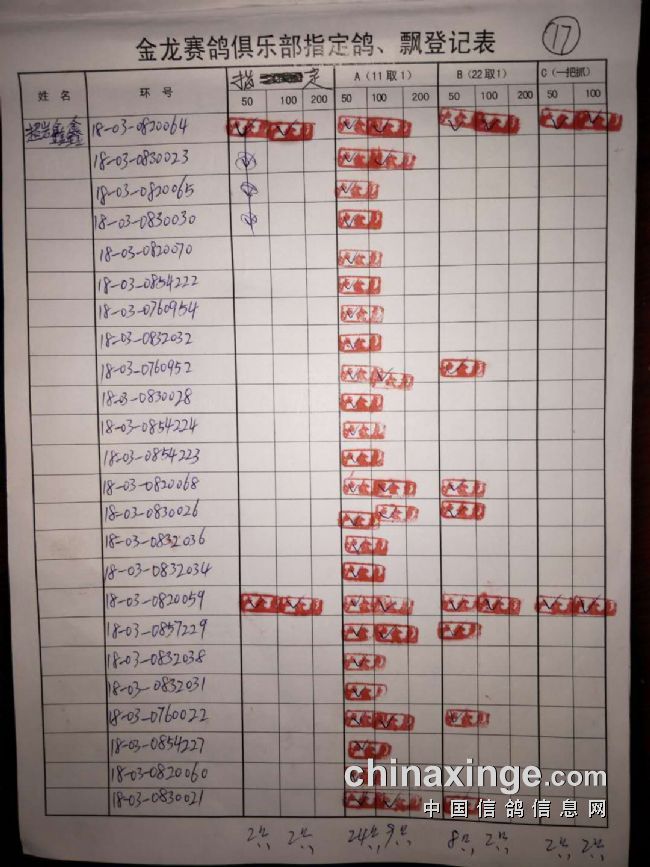 金龙赛鸽俱乐部指定鸽、飘登记表
17
姓 名 环 号 指 定 A（11取1） B（22取1） C（一把抓）
50 100 200 50 100 200 50 100 200 50 100
18-03-0820064
18-03-0830023
18-03-0820065
18-03-0830030
18-03-0820070
18-03-0854222
18-03-0760954
18-03-0832032
18-03-0760952
18-03-0830028
18-03-0854224
18-03-0854223
18-03-0820068
18-03-0830026
18-03-0832036
18-03-0832034
18-03-0820059
18-03-0857229
18-03-0832038
18-03-0832031
18-03-0760022
18-03-0854227
18-03-0820060
18-03-0830021
chinaxinge.com
中国信鸽信息网
2只 2只 24只 9只 8只 2只 2只 2只